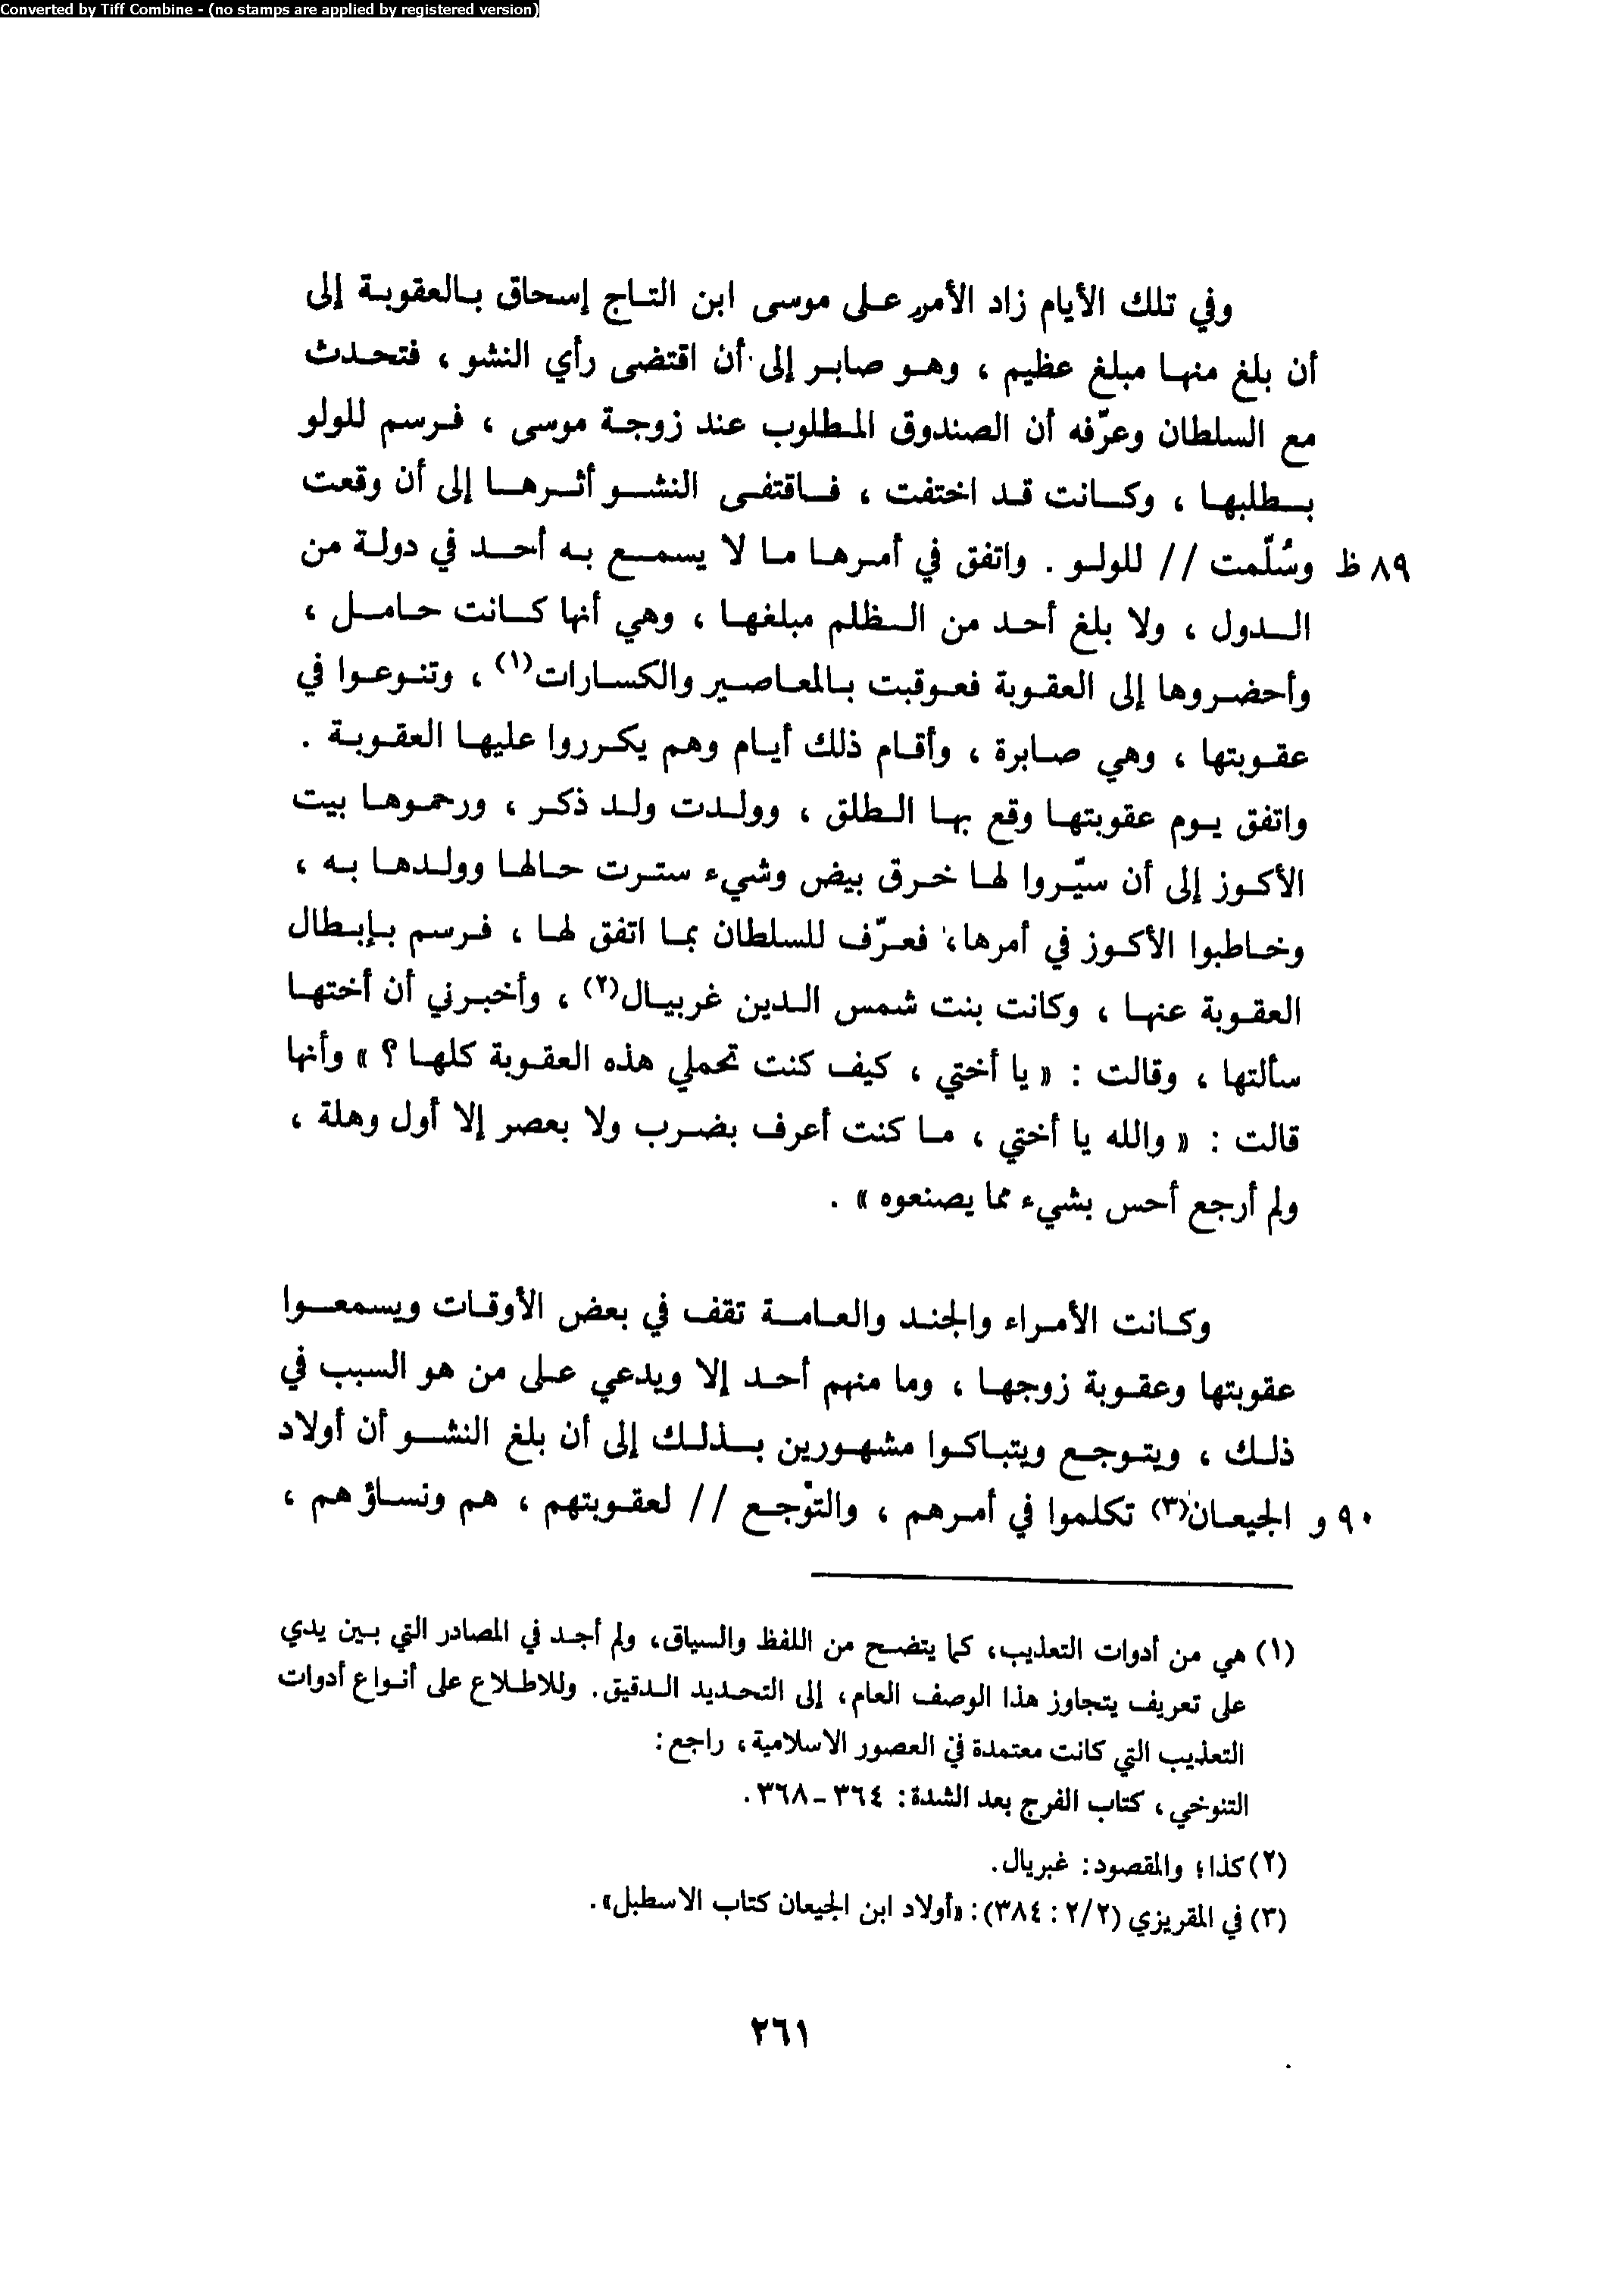 Converted by Tiff Combine - (no stamps are applied by registered version)
وفي تلك الأيام زاد الأمر على موسى ابن التاج إسحاق بالعقوبة إلى
أن بلغ منها مبلغ عظيم ، وهو صابر إلى أن اقتضى رأي النشو ، فتحدث
مع السلطان وعرّفه أن الصندوق المطلوب عند زوجة موسى ، فرسم للولو
بطلبها ، وكانت قد اختفت ، فاقتفى النشو أثرها إلى أن وقعت
٨٩ ظ وسُلّمت // للولو . واتفق في أمرها ما لا يسمع به أحد في دولة من
الدول ، ولا بلغ أحد من الظلم مبلغها ، وهي أنها كانت حامل ،
وأحضروها إلى العقوبة فعوقبت بالمعاصير والكسارات(١) ، وتنوعوا في
عقوبتها ، وهي صابرة ، وأقام ذلك أيام وهم يكرروا عليها العقوبة .
واتفق يوم عقوبتها وقع بها الطلق ، وولدت ولد ذكر ، ورحموها بيت
الأكوز إلى أن سيّروا لها خرق بيض وشيء سترت حالها وولدها به ،
وخاطبوا الأكوز في أمرها ، فعرّف للسلطان بما اتفق لها ، فرسم بإبطال
العقوبة عنها ، وكانت بنت شمس الدين غربيال(٢) ، وأخبرني أن أختها
سألتها ، وقالت : « يا أختي ، كيف كنت تحملي هذه العقوبة كلها ؟ » وأنها
قالت : « والله يا أختي ، ما كنت أعرف بضرب ولا بعصر إلا أول وهلة ،
ولم أرجع أحس بشيء مما يصنعوه » .
وكانت الأمراء والجند والعامة تقف في بعض الأوقات ويسمعوا
عقوبتها وعقوبة زوجها ، وما منهم أحد إلا ويدعي على من هو السبب في
ذلك ، ويتوجع ويتباكوا مشهورين بذلك إلى أن بلغ النشو أن أولاد
٩٠ و الجيعان(٣) تكلموا في أمرهم ، والتوّجع // لعقوبتهم ، هم ونساؤهم ،
(١) هي من أدوات التعذيب، كما يتضح من اللفظ والسياق، ولم أجد في المصادر التي بين يدي
على تعريف يتجاوز هذا الوصف العام، إلى التحديد الدقيق. وللاطلاع على أنواع أدوات
التعذيب التي كانت معتمدة في العصور الاسلامية، راجع:
التنوخي، كتاب الفرج بعد الشدة: ٣٦٤-٣٦٨.
(٢) كذا؛ والمقصود: غبريال.
(٣) في المقريزي (٢/٢: ٣٨٤): «أولاد ابن الجيعان كتاب الاسطبل».
٢٦١